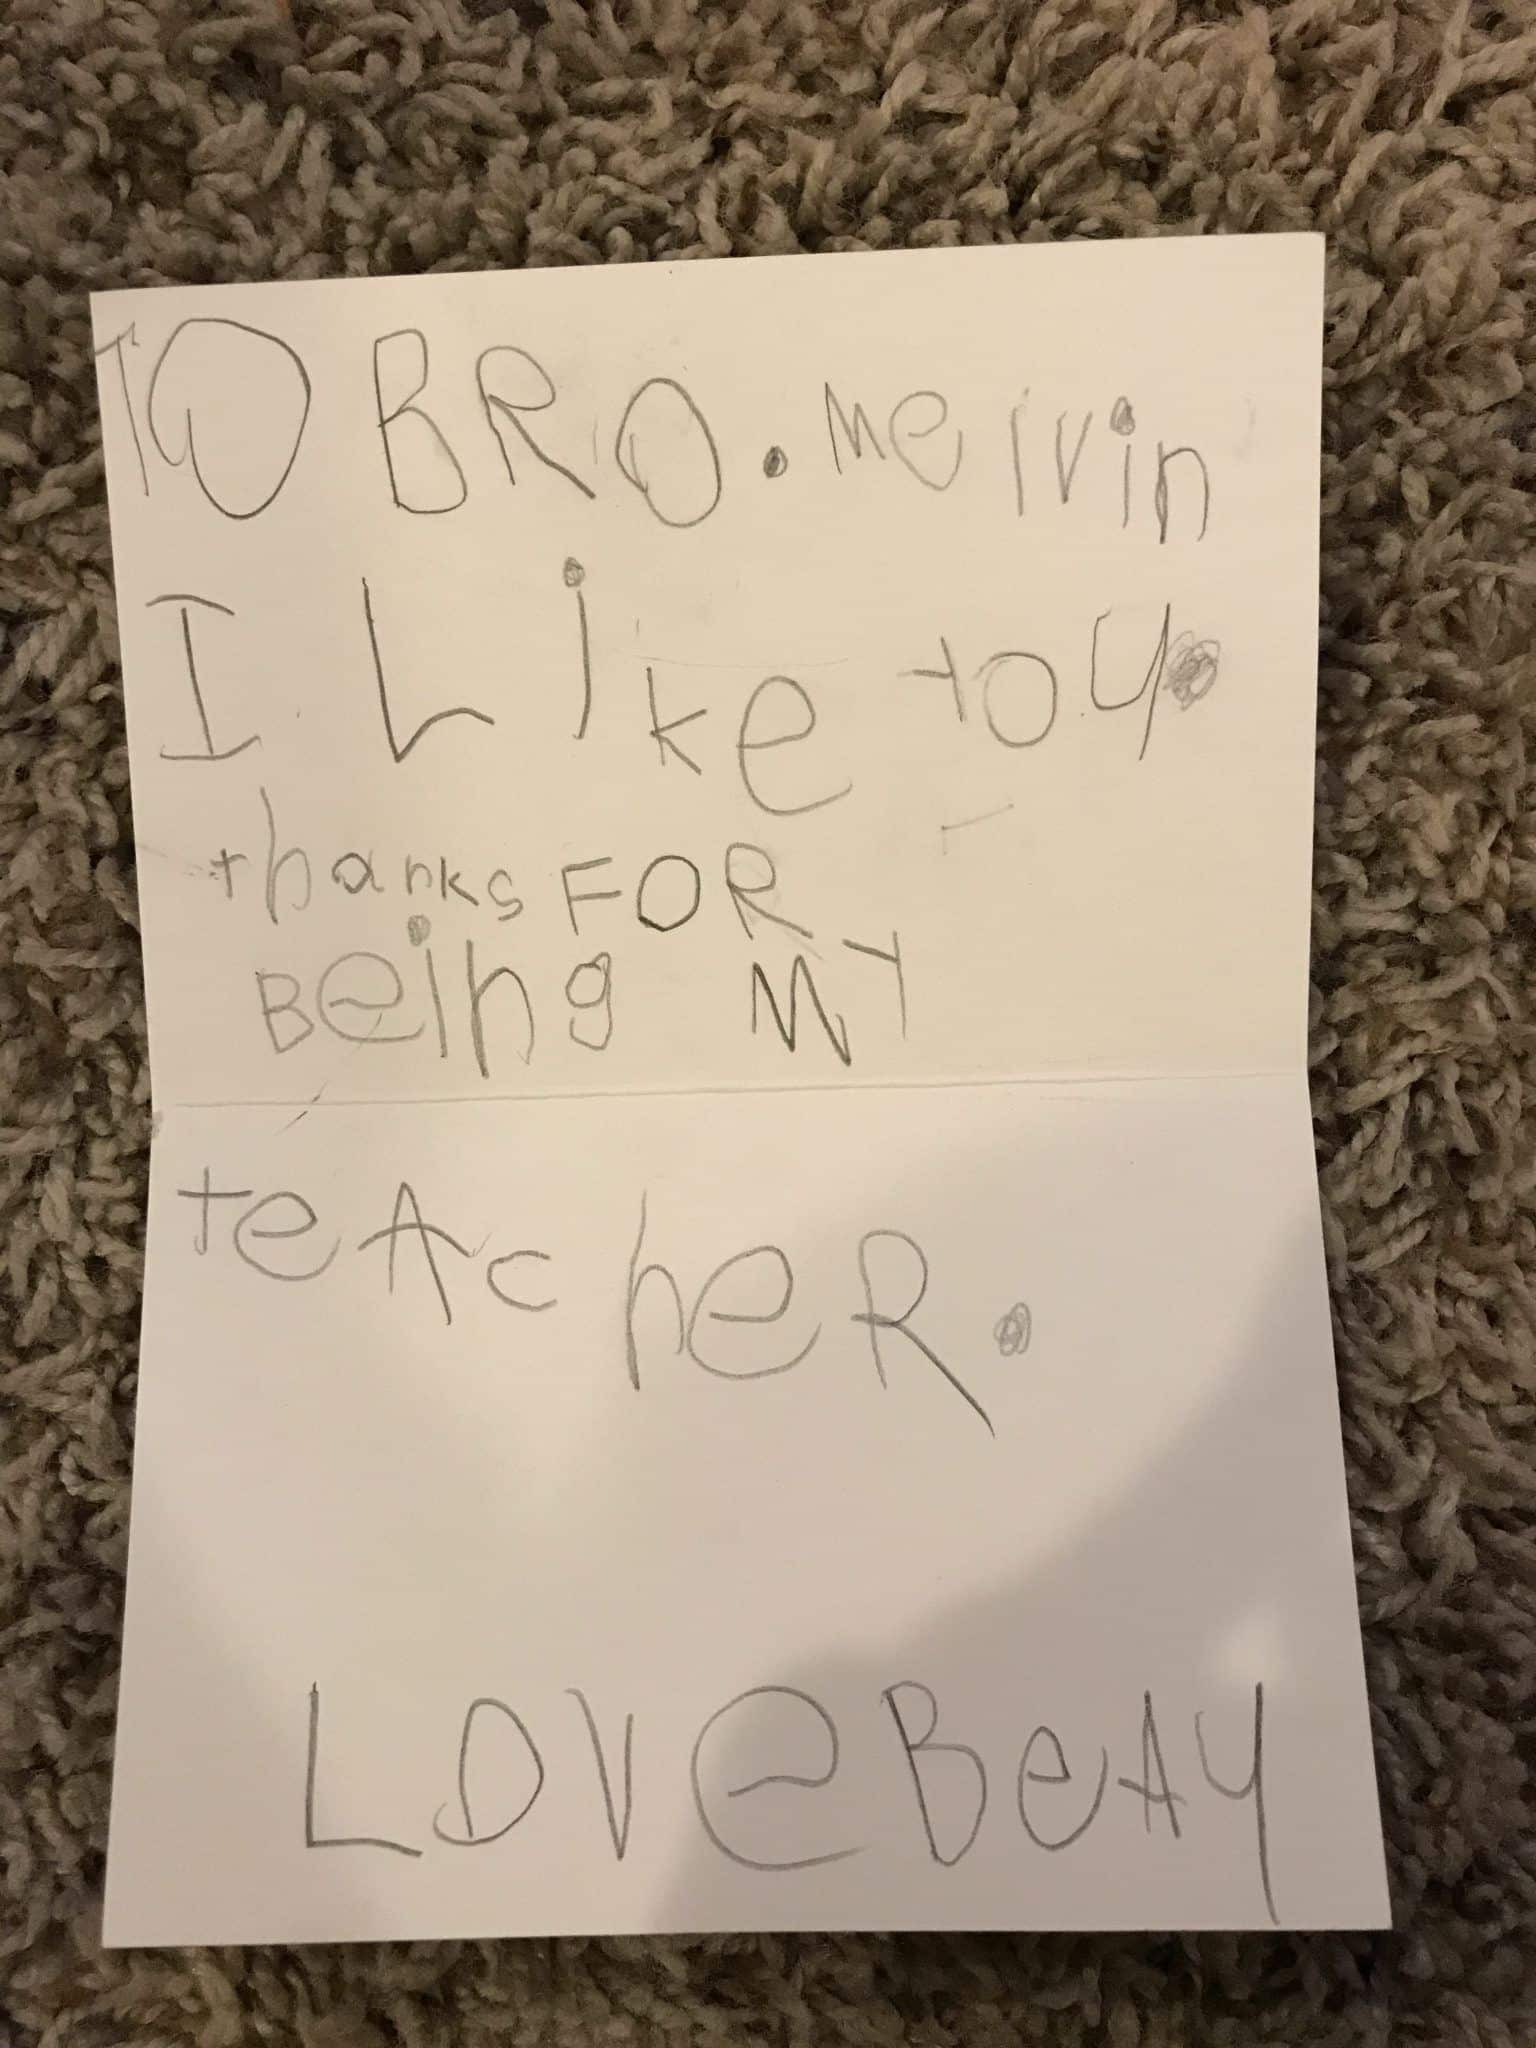 TO BRO. Melvin
I Like YOU.
thanks FOR
Being MY
teAcheR.
LOVe BeAy